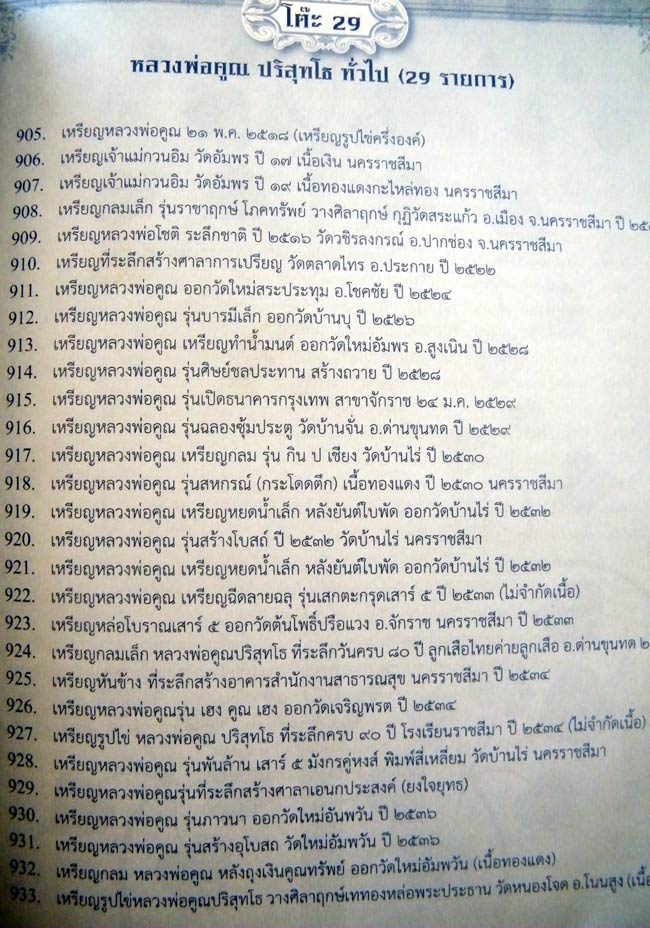 โต๊ะ 29
หลวงพ่อคูณ ปริสุทโธ ทั่วไป (29 รายการ)
905. เหรียญหลวงพ่อคูณ ๒๑ พ.ค. ๒๕๑๘ (เหรียญรูปไข่ครึ่งองค์)
906. เหรียญเจ้าแม่กวนอิม วัดอัมพร ปี ๑๗ เนื้อเงิน นครราชสีมา
907. เหรียญเจ้าแม่กวนอิม วัดอัมพร ปี ๑๙ เนื้อทองแดงกะไหล่ทอง นครราชสีมา
908. เหรียญกลมเล็ก รุ่นราชาฤกษ์ โภคทรัพย์ วางศิลาฤกษ์ กุฏิวัดสระแก้ว อ.เมือง จ.นครราชสีมา ปี
909. เหรียญหลวงพ่อโชติ ระลึกชาติ ปี ๒๕๑๖ วัดวชิรลงกรณ์ อ.ปากช่อง จ.นครราชสีมา
910. เหรียญที่ระลึกสร้างศาลาการเปรียญ วัดตลาดไทร อ.ประกาย ปี ๒๕๒๒
911. เหรียญหลวงพ่อคูณ ออกวัดใหม่สระประทุม อ.โชคชัย ปี ๒๕๒๔
912. เหรียญหลวงพ่อคูณ รุ่นบารมีเล็ก ออกวัดบ้านบุ ปี ๒๕๒๖
913. เหรียญหลวงพ่อคูณ เหรียญทำน้ำมนต์ ออกวัดใหม่อัมพร อ.สูงเนิน ปี ๒๕๒๘
914. เหรียญหลวงพ่อคูณ รุ่นศิษย์ชลประทาน สร้างถวาย ปี ๒๕๒๘
915. เหรียญหลวงพ่อคูณ รุ่นเปิดธนาคารกรุงเทพ สาขาจักราช ๒๔ ม.ค. ๒๕๒๙
916. เหรียญหลวงพ่อคูณ รุ่นฉลองซุ้มประตู วัดบ้านจั่น อ.ด่านขุนทด ปี ๒๕๒๙
917. เหรียญหลวงพ่อคูณ เหรียญกลม รุ่น กิน ป เชียง วัดบ้านไร่ ปี ๒๕๓๐
918. เหรียญหลวงพ่อคูณ รุ่นสหกรณ์ (กระโดดตึก) เนื้อทองแดง ปี ๒๕๓๐ นครราชสีมา
919. เหรียญหลวงพ่อคูณ เหรียญหยดน้ำเล็ก หลังยันต์ใบพัด ออกวัดบ้านไร่ ปี ๒๕๓๒
920. เหรียญหลวงพ่อคูณ รุ่นสร้างโบสถ์ ปี ๒๕๓๒ วัดบ้านไร่ นครราชสีมา
921. เหรียญหลวงพ่อคูณ เหรียญหยดน้ำเล็ก หลังยันต์ใบพัด ออกวัดบ้านไร่ ปี ๒๕๓๒
922. เหรียญหลวงพ่อคูณ เหรียญฉีดลายฉลุ รุ่นเสกตะกรุดเสาร์ ๕ ปี ๒๕๓๓ (ไม่จำกัดเนื้อ)
923. เหรียญหล่อโบราณเสาร์ ๕ ออกวัดต้นโพธิ์ปรือแวง อ.จักราช นครราชสีมา ปี ๒๕๓๓
924. เหรียญกลมเล็ก หลวงพ่อคูณปริสุทโธ ที่ระลึกวันครบ ๘๐ ปี ลูกเสือไทยค่ายลูกเสือ อ.ด่านขุนทด
925. เหรียญหันข้าง ที่ระลึกสร้างอาคารสำนักงานสาธารณสุข นครราชสีมา ปี ๒๕๓๔
926. เหรียญหลวงพ่อคูณรุ่น เฮง คูณ เฮง ออกวัดเจริญพรต ปี ๒๕๓๔
927. เหรียญรูปไข่ หลวงพ่อคูณ ปริสุทโธ ที่ระลึกครบ ๙๐ ปี โรงเรียนราชสีมา ปี ๒๕๓๔ (ไม่จำกัดเนื้อ)
928. เหรียญหลวงพ่อคูณ รุ่นพันล้าน เสาร์ ๕ มังกรคู่หงส์ พิมพ์สี่เหลี่ยม วัดบ้านไร่ นครราชสีมา
929. เหรียญหลวงพ่อคูณรุ่นที่ระลึกสร้างศาลาเอนกประสงค์ (ยงใจยุทธ)
930. เหรียญหลวงพ่อคูณ รุ่นภาวนา ออกวัดใหม่อันพวัน ปี ๒๕๓๖
931. เหรียญหลวงพ่อคูณ รุ่นสร้างอุโบสถ วัดใหม่อัมพวัน ปี ๒๕๓๖
932. เหรียญกลม หลวงพ่อคูณ หลังถุงเงินคูณทรัพย์ ออกวัดใหม่อัมพวัน (เนื้อทองแดง)
933. เหรียญรูปไข่หลวงพ่อคูณปริสุทโธ วางศิลาฤกษ์เททองหล่อพระประธาน วัดหนองโจด อ.โนนสูง